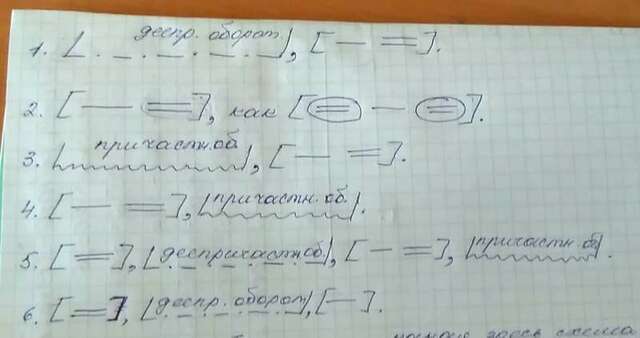 1. [ деепр. оборот ], [— =].
2. [— =], как [= — =].
3. | причастн. об. |, [— =].
4. [— =], | причастн. об. |.
5. [=], | деепричастн об |, [— =], | причастн. об |.
6. [=], | деепр. оборот |, [—].
здесь схема